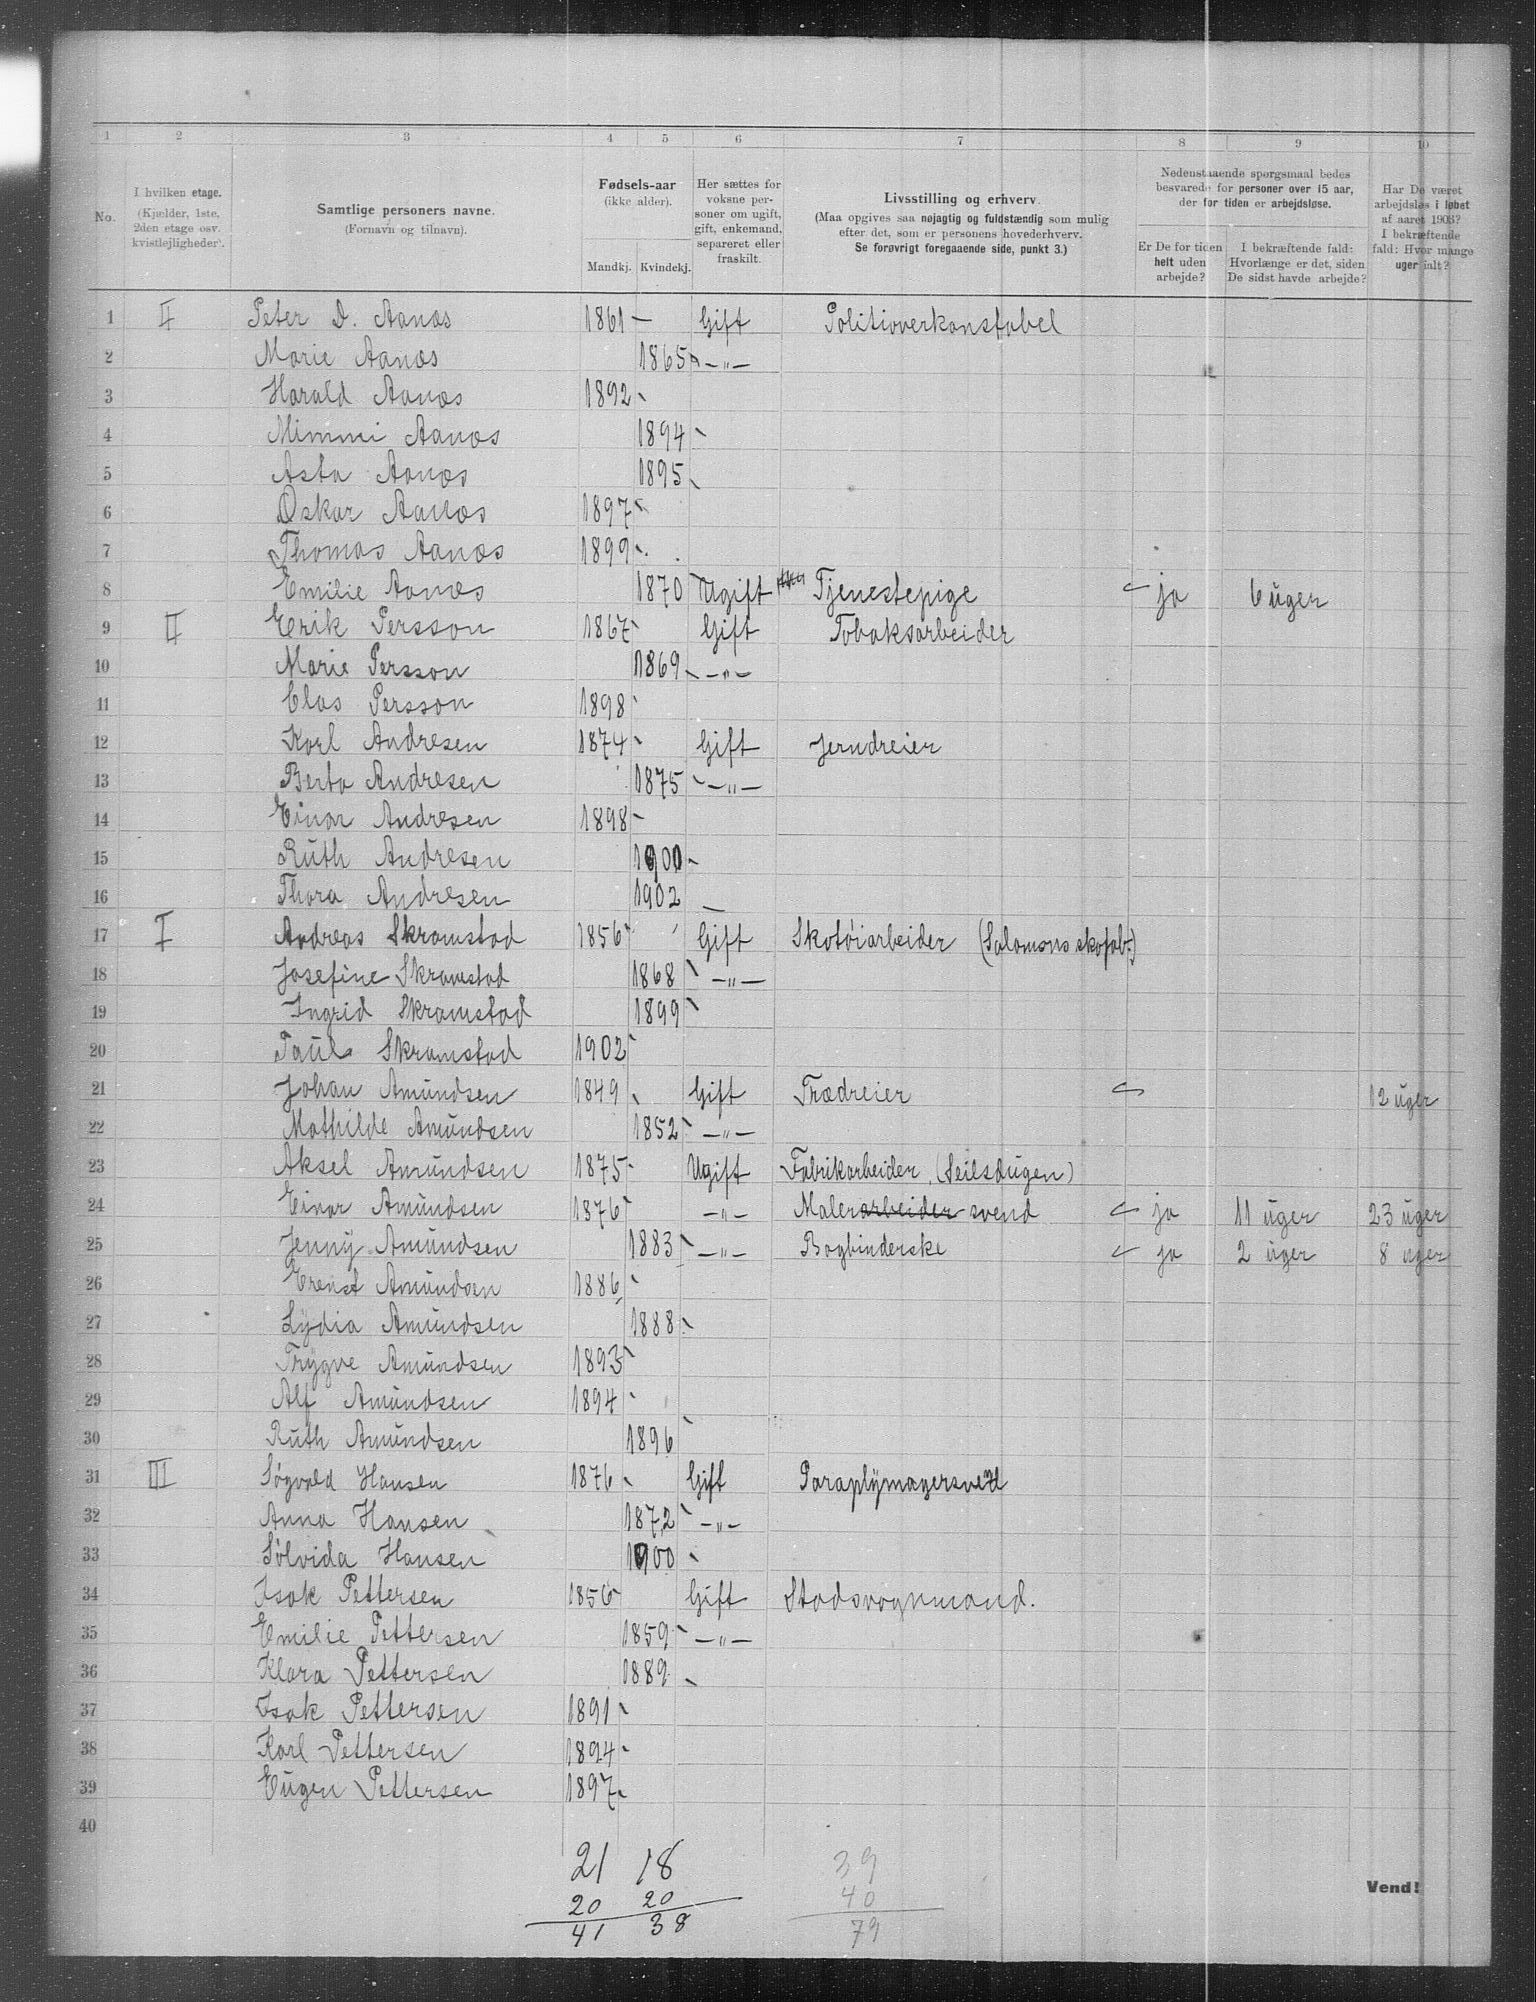 1 2 3 4 5 6 7 8 9 10
No.
I hvilken etage.
(Kjælder, 1ste, 2den etage osv. kvistlejligheder).
Samtlige personers navne.
(Fornavn og tilnavn).
Fødsels-aar
(ikke alder).
Mandkj. Kvindekj.
Her sættes for voksne personer om ugift, gift, enkemand, separeret eller fraskilt.
Livsstilling og erhverv.
(Maa opgives saa nøjagtig og fuldstændig som mulig efter det, som er personens hovederhverv.
Se forøvrigt foregaaende side, punkt 3.)
Nedenstaaende spørgsmaal bedes besvarede for personer over 15 aar, der for tiden er arbejdsløse.
Er De for tiden helt uden arbejde?
I bekræftende fald: Hvorlænge er det, siden De sidst havde arbejde?
Har De været arbejdsløs i løbet af aaret 1903?
I bekræftende fald: Hvor mange uger ialt?
1 II Peter D. Aanæs 1861 — Gift Politioverkonstabel
2 Marie Aanæs 1865 —"—
3 Harald Aanæs 1892
4 Mimmi Aanæs 1894
5 Asta Aanæs 1895
6 Oskar Aanæs 1897
7 Thomas Aanæs 1899
8 Emilie Aanæs 1870 Ugift Tjenestepige ja 6 uger
9 II Erik Persson 1867 Gift Tobaksarbeider
10 Marie Persson 1869 —"—
11 Clas Persson 1898
12 Karl Andresen 1874 Gift Jerndreier
13 Berta Andresen 1875 —"—
14 Einar Andresen 1898
15 Ruth Andresen 1900
16 Thora Andresen 1902
17 I Andreas Skramstad 1856 Gift Skotøiarbeider (Salomons skofabr.)
18 Josefine Skramstad 1868 —"—
19 Ingrid Skramstad 1899
20 Paul Skramstad 1902
21 Johan Amundsen 1849 Gift Trædreier 12 uger
22 Mathilde Amundsen 1852 —"—
23 Aksel Amundsen 1875 Ugift Fabrikarbeider (Seilsdugen)
24 Einar Amundsen 1876 —"— Malerarbeider svend ja 11 uger 23 uger
25 Jenny Amundsen 1883 —"— Bogbinderske ja 2 uger 8 uger
26 Ernst Amundsen 1886
27 Lydia Amundsen 1888
28 Trygve Amundsen 1893
29 Alf Amundsen 1894
30 Ruth Amundsen 1896
31 III Sigvald Hansen 1876 Gift Paraplymagersvend
32 Anna Hansen 1872 —"—
33 Sølvida Hansen 1900
34 Isak Pettersen 1856 Gift Stadsvognmand.
35 Emilie Pettersen 1859 —"—
36 Klara Pettersen 1889
37 Isak Pettersen 1891
38 Karl Pettersen 1894
39 Eugen Pettersen 1897
40
21 18 39
20 20 40
41 38 79
Vend!